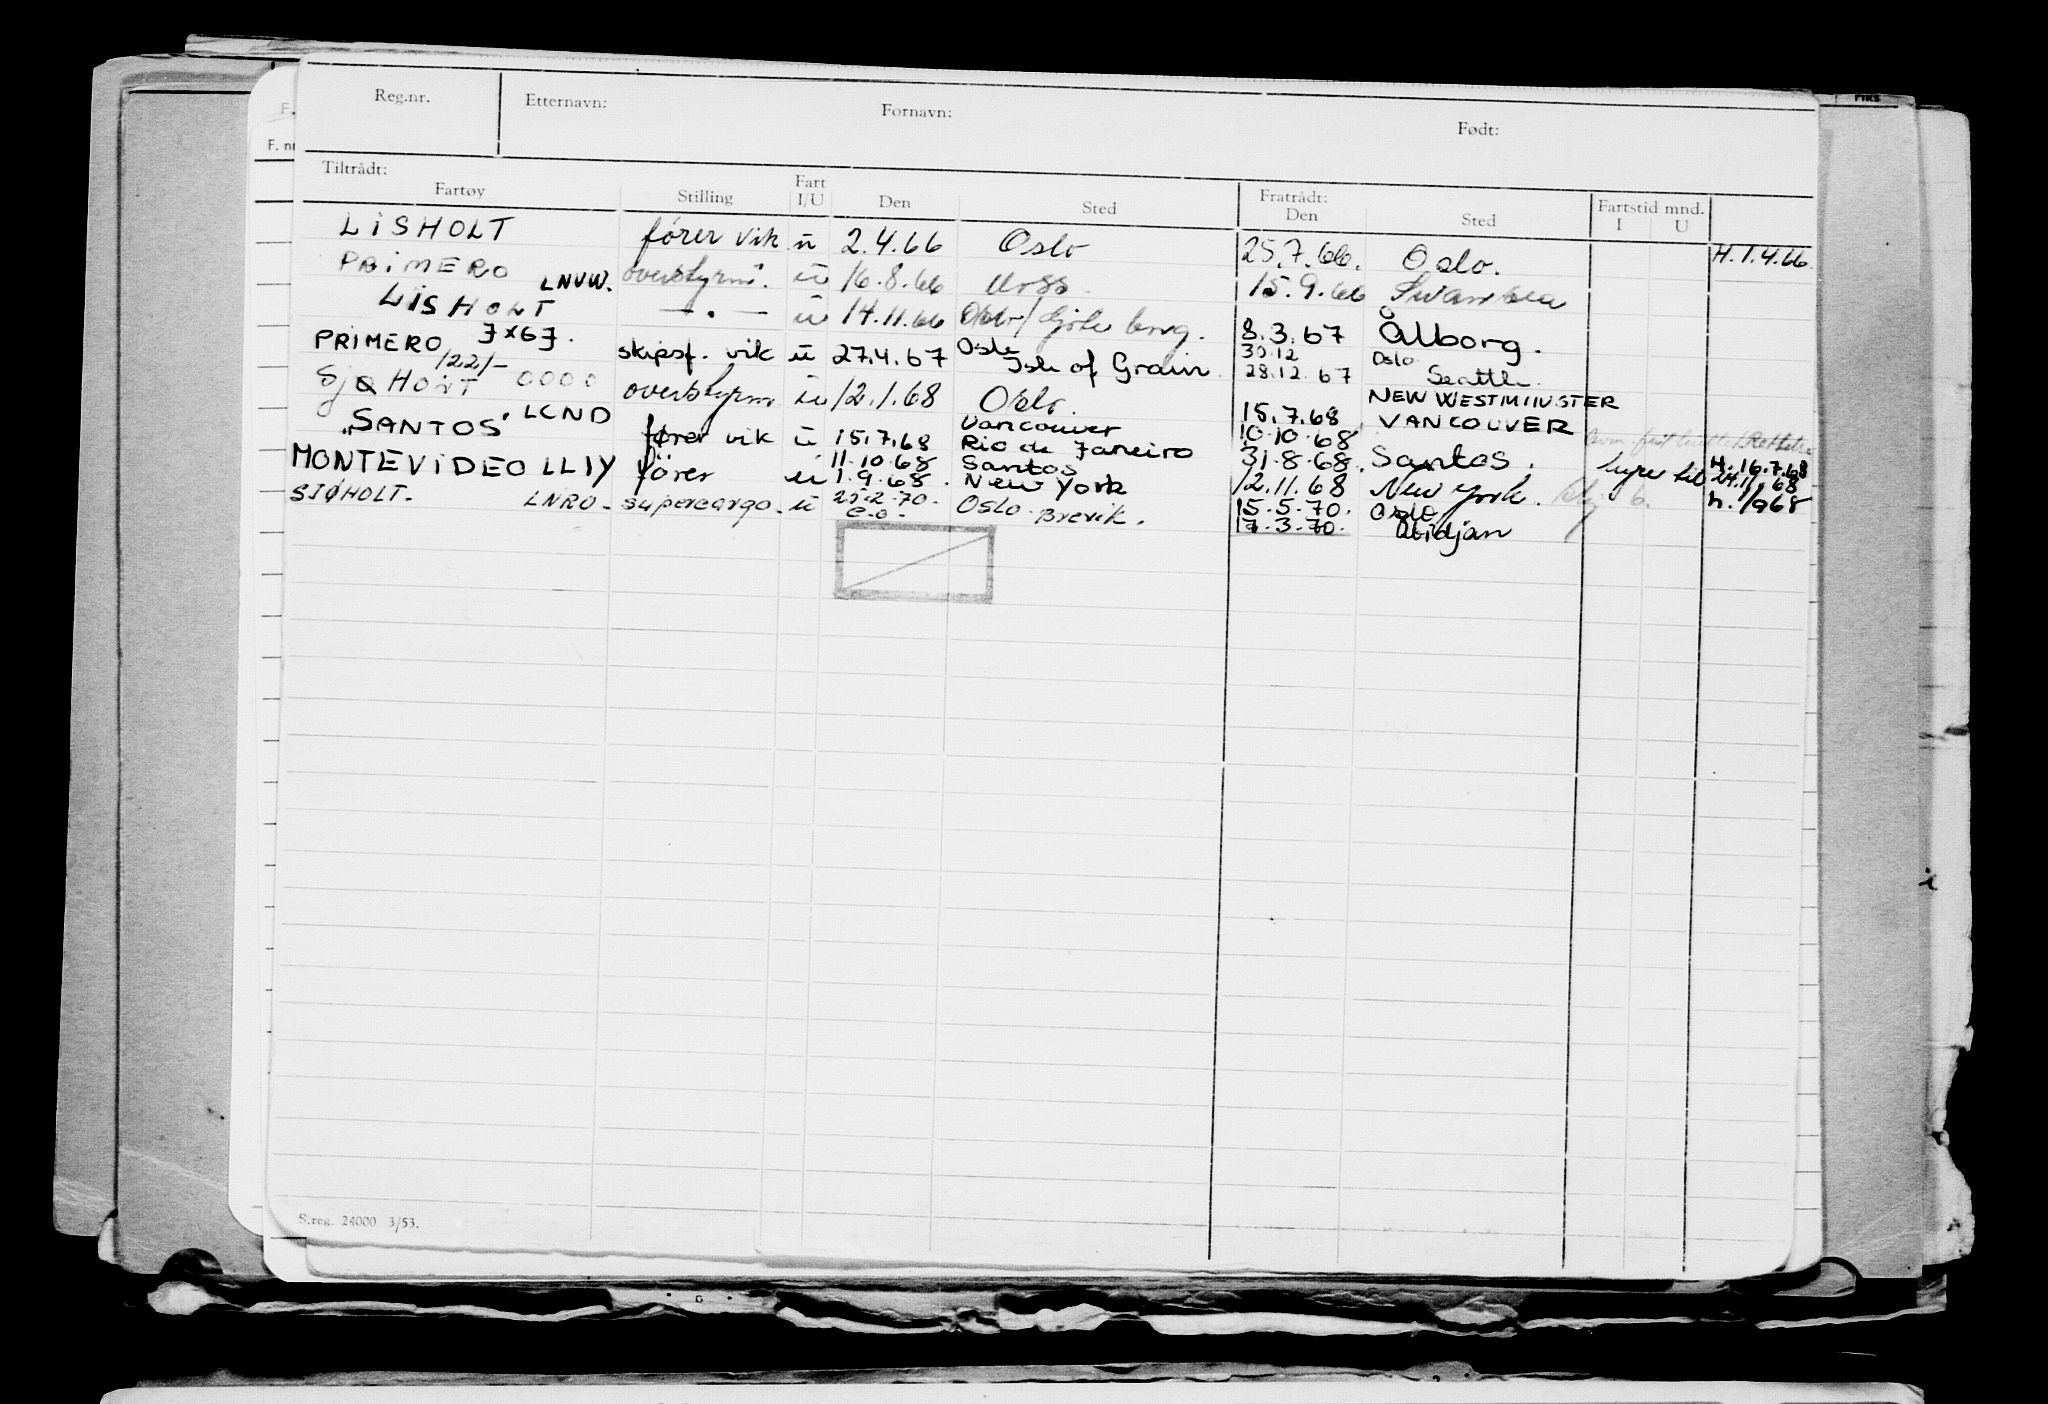 Reg.nr. Etternavn: Fornavn: Født:
Tiltrådt: Fratrådt:
Fartøy Stilling Fart I/U Den Sted Den Sted Fartstid mnd. I U
LISHOLT fører vik u 2.4.66 Oslo 25.7.66. Oslo. H.1.4.66
PRIMERO LNVW. overstyrm. u 16.8.66 Moss. 15.9.66 Swansea
LISHOLT — . — u 14.11.66 Oslo/ 8.3.67 Ålborg.
PRIMERO JX67. skipsf. vik u 27.4.67 Oslo Isle of Grain 30.12 28.12.67 Oslo Seattle.
/22/-
SJØHOLT 0000 overstyrm u 12.1.68 Oslo. 15.7.68 NEW WESTMINSTER VANCOUVER
"SANTOS" LCND fører vik u 15.7.68 Vancouver 10.10.68
11.10.68 Rio de Janeiro 31.8.68. Santos. H.16.7.68
MONTEVIDEO LLIY fører u 1.9.68. Santos New York 12.11.68 New York. 6. h.1/968
SJØHOLT. LNRO. supercargo. u 25.2.70. Oslo. Brevik. 15.5.70. Oslo
e.o. 17.3.70. Abidjan
S.reg. 24000 3/53.